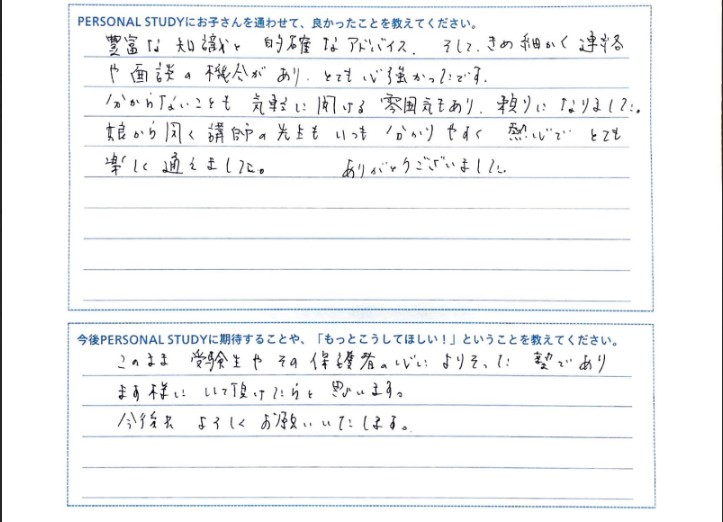 PERSONAL STUDYにお子さんを通わせて、良かったことを教えてください。
豊富な知識と的確なアドバイス、そして、きめ細かく連絡
や面談の機会があり、とても心強かったです。
分からないことも気軽に聞ける雰囲気もあり、頼りになりました。
娘から聞く講師の先生もいつも分かりやすく熱心でとても
楽しく通えました。ありがとうございました。
今後PERSONAL STUDYに期待することや、「もっとこうしてほしい！」ということを教えてください。
このまま受験生やその保護者の心によりそった塾であり
ます様にして頂けたらと思います。
今後共よろしくお願いいたします。